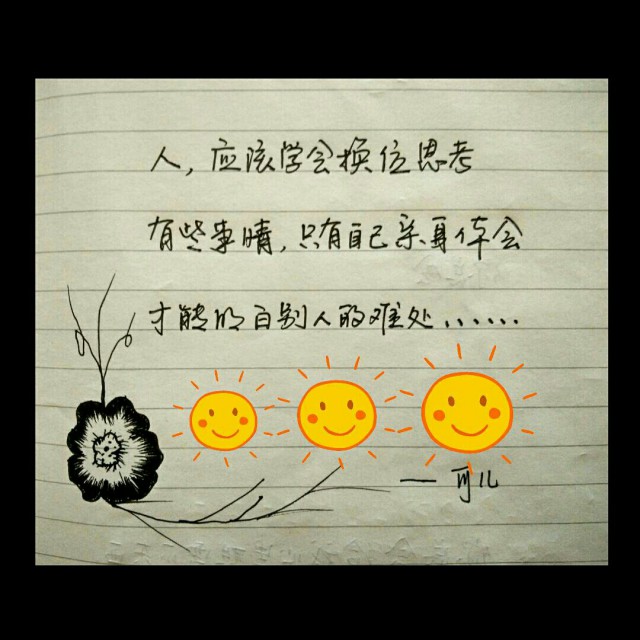 人，应该学会换位思考
有些事情，只有自己亲身体会
才能明白别人的难处......
——可儿